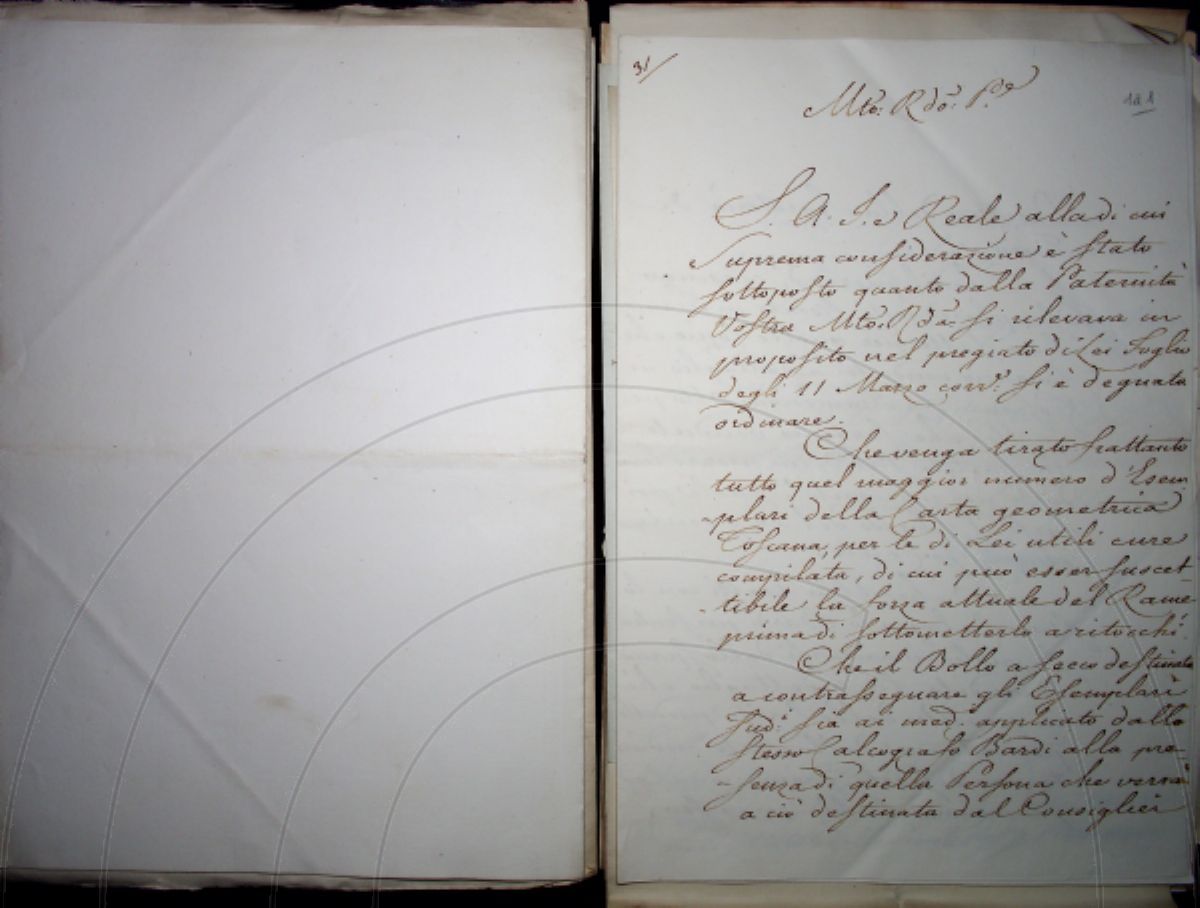 31
Mto: Rdo: Pde
181
S. A. I. e Reale alla di cui
Suprema considerazione è stato
sottoposto quanto dalla Paternità
Vostra Mto: Rda: si rilevava in
proposito nel pregiato di Lei Foglio
degli 11 Marzo corre: si è degnata
ordinare.
Che venga tirato frattanto
tutto quel maggior numero d'Esem
-plari della Carta geometrica
Toscana, per le di Lei utili cure
compilata, di cui può esser suscet-
-tibile la forza attuale del Rame,
prima di sottometterlo a ritocchi.
Che il Bollo a secco destinato
a contrassegnare gli Esemplari
sudi: sia ai med. applicato dallo
stesso Calcografo Bardi alla pre-
-senza di quella Persona che verrà
a ciò destinata dal Consiglier